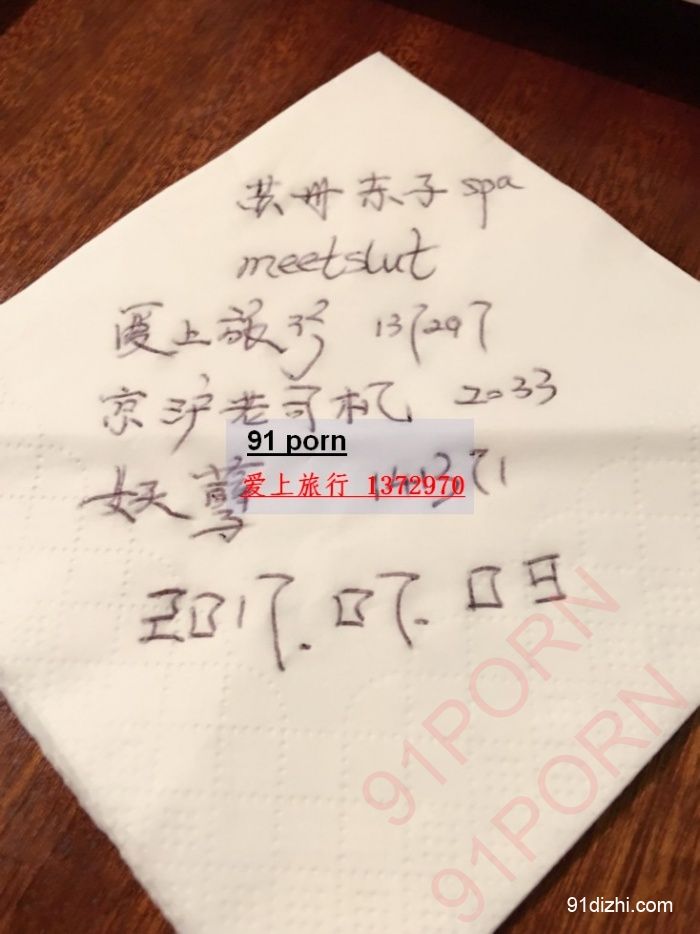 苏州东子spa
meetslut
爱上旅行 137297
京沪老司机 2033
妖孽
91 porn
爱上旅行 1372970
2017.07.09
91PORN
91PORN
91dizhi.com